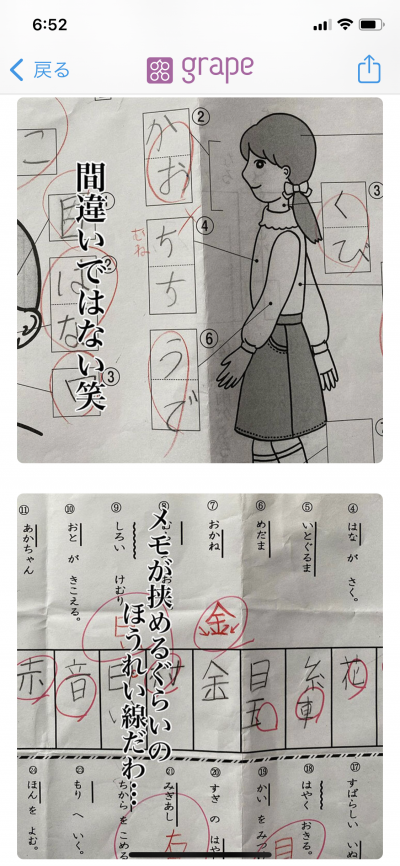 6:52
戻る
grape
こ
②
かお
③
くび
④
ちち
むね
⑥
うで
間違いではない笑
①
目
②
はな
③
④ はな が さく。
⑤ いとぐるま
⑥ めだま
⑦ おかね
⑧
⑨ しろい けむり
⑩ おと が きこえる。
⑪ あかちゃん
メモが挟めるぐらいの
ほうれい線だわ…
金
花
糸車
目玉
金
音
赤
⑰ すばらしい いぬ
⑱ はやく おきる。
⑲ かい を みつ
⑳ すぎ の はや
㉑ みぎあし
ちから を こめる
㉓ もり へ いく。
㉔ ほん を よむ。
右
目